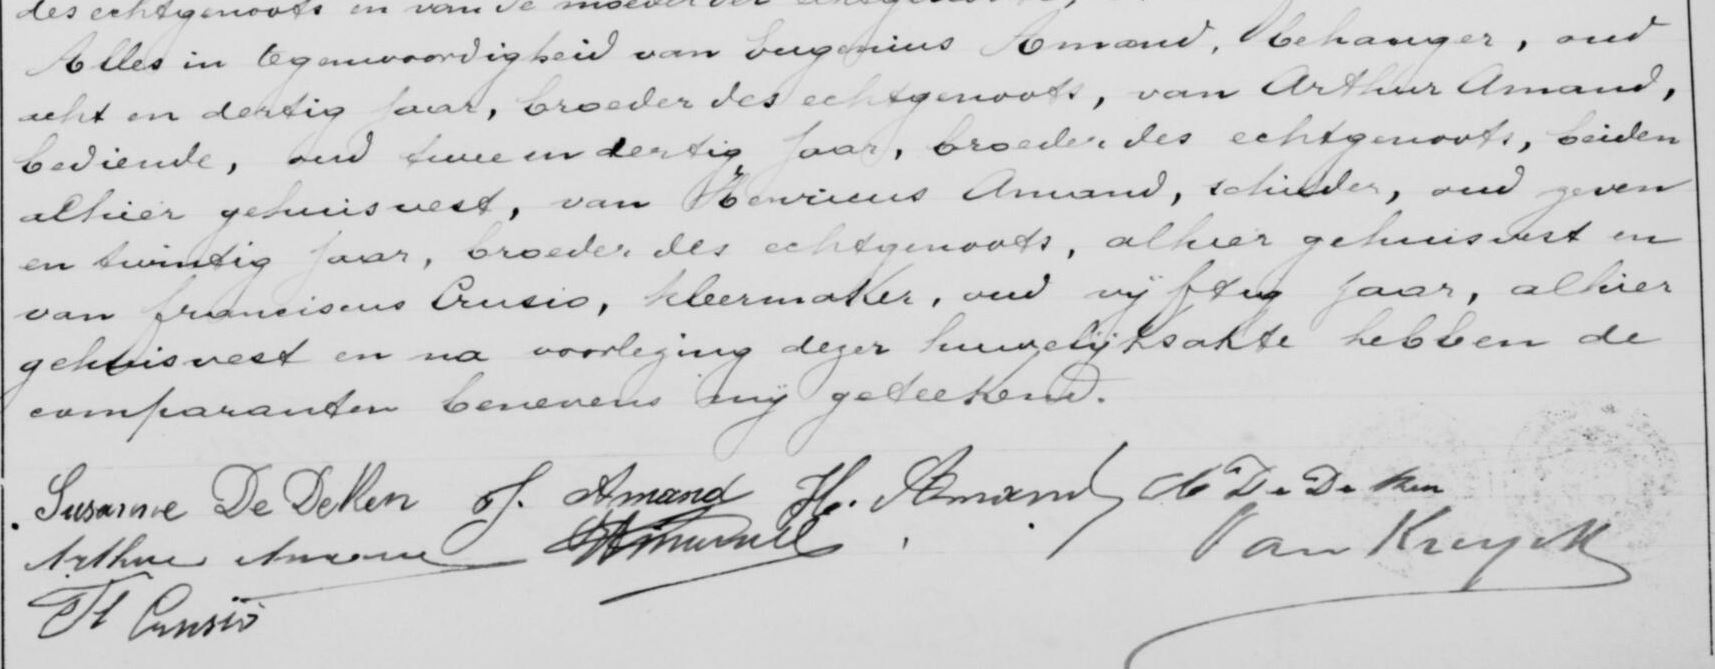 des echtgenoots en van de moeder der echtgenoote,
Alles in tegenwoordigheid van Eugenius Amand, behanger, oud
acht en dertig jaar, broeder des echtgenoots, van Arthur Amand,
bediende, oud twee en dertig jaar, broeder des echtgenoots, beiden
alhier gehuisvest, van Henricus Amand, schilder, oud zeven
en twintig jaar, broeder des echtgenoots, alhier gehuisvest en
van franciscus Crusio, kleermaker, oud vijftig jaar, alhier
gehuisvest en na voorlezing dezer huwelijksakte hebben de
comparanten benevens mij geteekend.
Susanne De Deken J. Amand H. Amand De Deken
Arthur Amand Van Kruyck
Fs Crusio